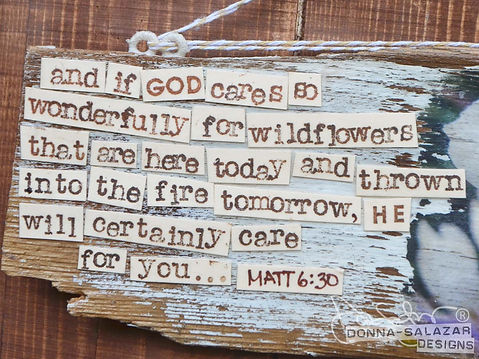 and if GOD cares so
wonderfully for wildflowers
that are here today and thrown
into the fire tomorrow, HE
will certainly care
for you... MATT 6:30
DONNA-SALAZAR
DESIGNS
®